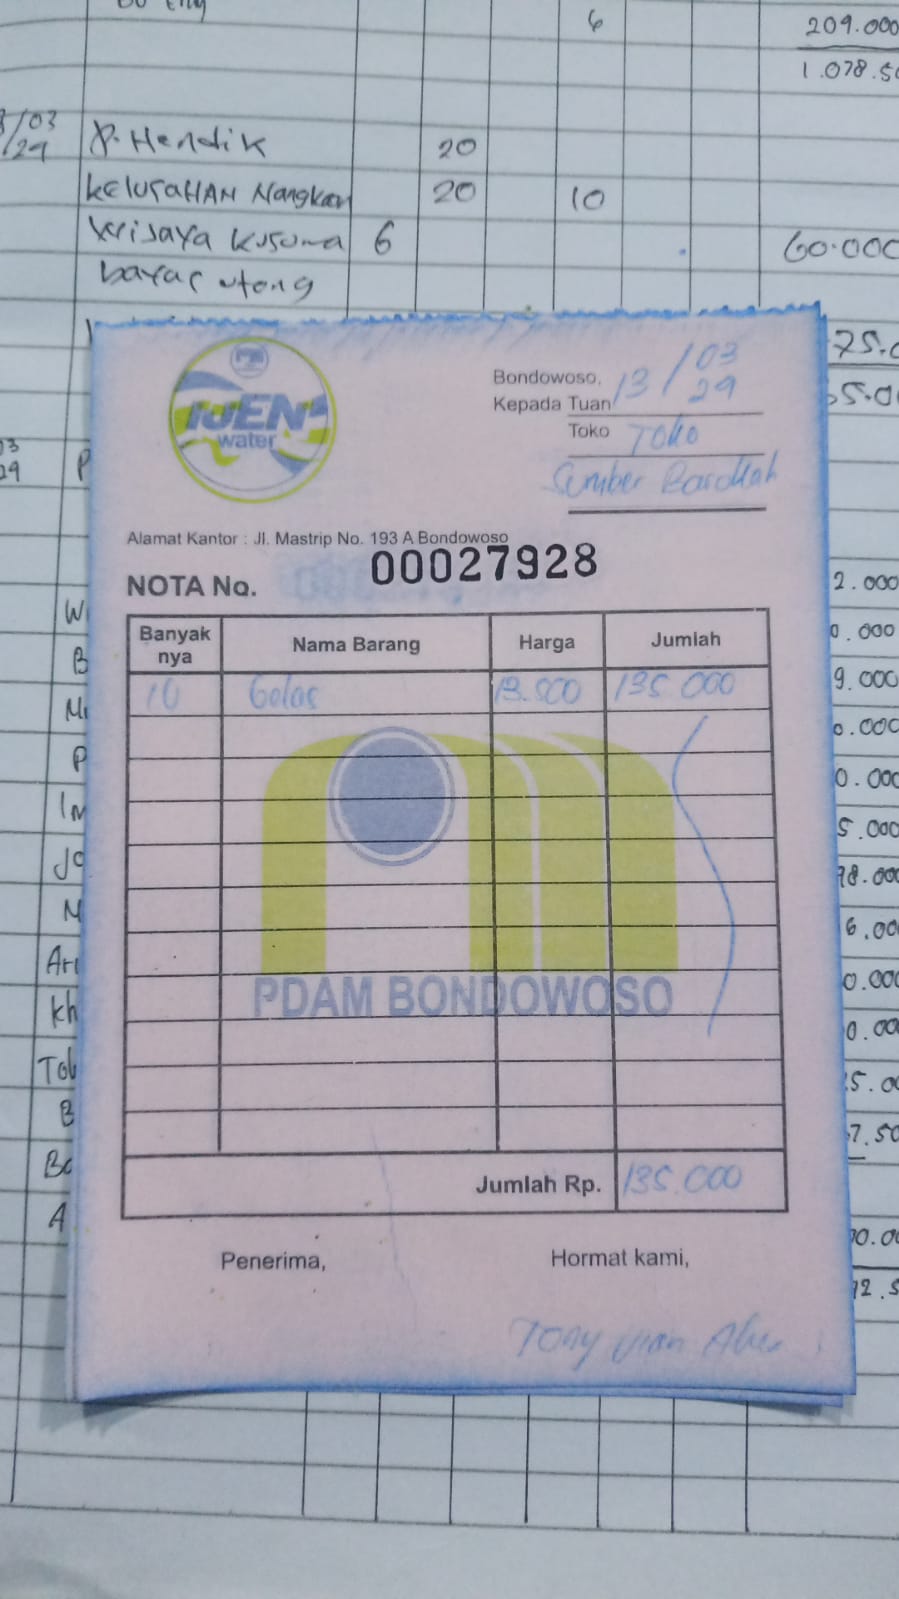 6
209.000
1.078.50
/03
/29
P. Hendik 20
KELURAHAN Nangkaan 20 10
Wijaya Kusuma 6 60.000
bayar utong
75.0
5.00
03
29
P
IJEN
water
Bondowoso, 13/03
29
Kepada Tuan
Toko Toko
Sumber Barokah
Alamat Kantor : Jl. Mastrip No. 193 A Bondowoso
NOTA No. 00027928
Banyak
nya
Nama Barang
Harga
Jumlah
10 Gelas 13.500 135.000
PDAM BONDOWOSO
Jumlah Rp. 135.000
Penerima,
Hormat kami,
Tony
W 2.000
B 0.000
M 9.000
P 0.000
Im 0.000
Jo 5.000
M 98.000
Ari 6.00
Kh 0.000
0.00
Tok 5.00
B 7.50
Ba
A 0.00
72.5